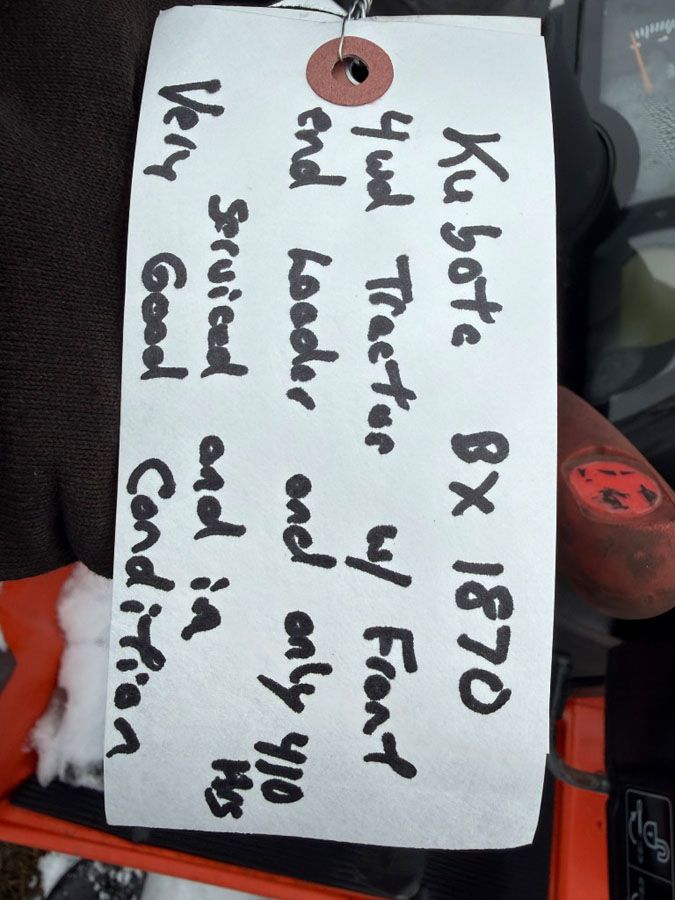 Kubota BX 1870
4wd Tractor w/ Front
end Loader and only 410
Hrs
Serviced and in
Very Good Condition